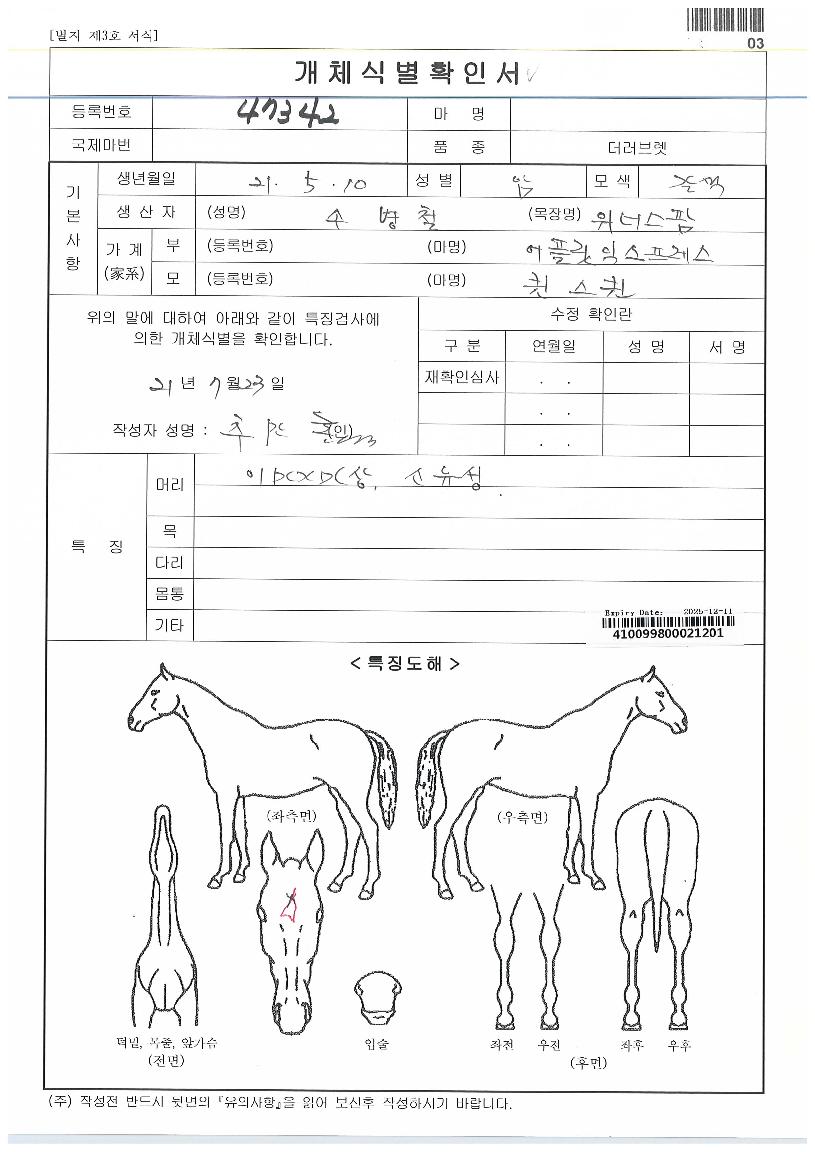 [별지 제3호 서식]
03
개체식별확인서
등록번호 47342 마 명
국제마번 품 종 더러브렛
기본사항
생년월일 21. 5. 10 성 별 암 모 색 갈색
생 산 자 (성명) 병철 (목장명) 위너스팜
가 계 (家系) 부 (등록번호) (마명) 어플릿익스프레스
모 (등록번호) (마명) 퀸 스퀸
위의 말에 대하여 아래와 같이 특징검사에
의한 개체식별을 확인합니다.
21 년 7 월 23 일
작성자 성명 : (인)
수정 확인란
구 분 연월일 성 명 서 명
재확인심사 . .
. .
. .
특 징
머리
목
다리
몸통
기타
Expiry Date: 2025-12-11
410099800021201
< 특징도해 >
(좌측면) (우측면)
턱밑, 목줄, 앞가슴
(전면)
입술
좌전 우전 좌후 우후
(후면)
(주) 작성전 반드시 뒷면의 『유의사항』을 읽어 보신후 작성하시기 바랍니다.